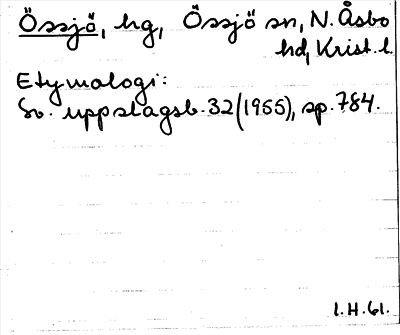 Össjö, hg, Össjö sn, N. Åsbo
hd, Krist. l.
Etymologi:
Sv. uppslagsb. 32 (1955), sp. 784.
I.H.61.